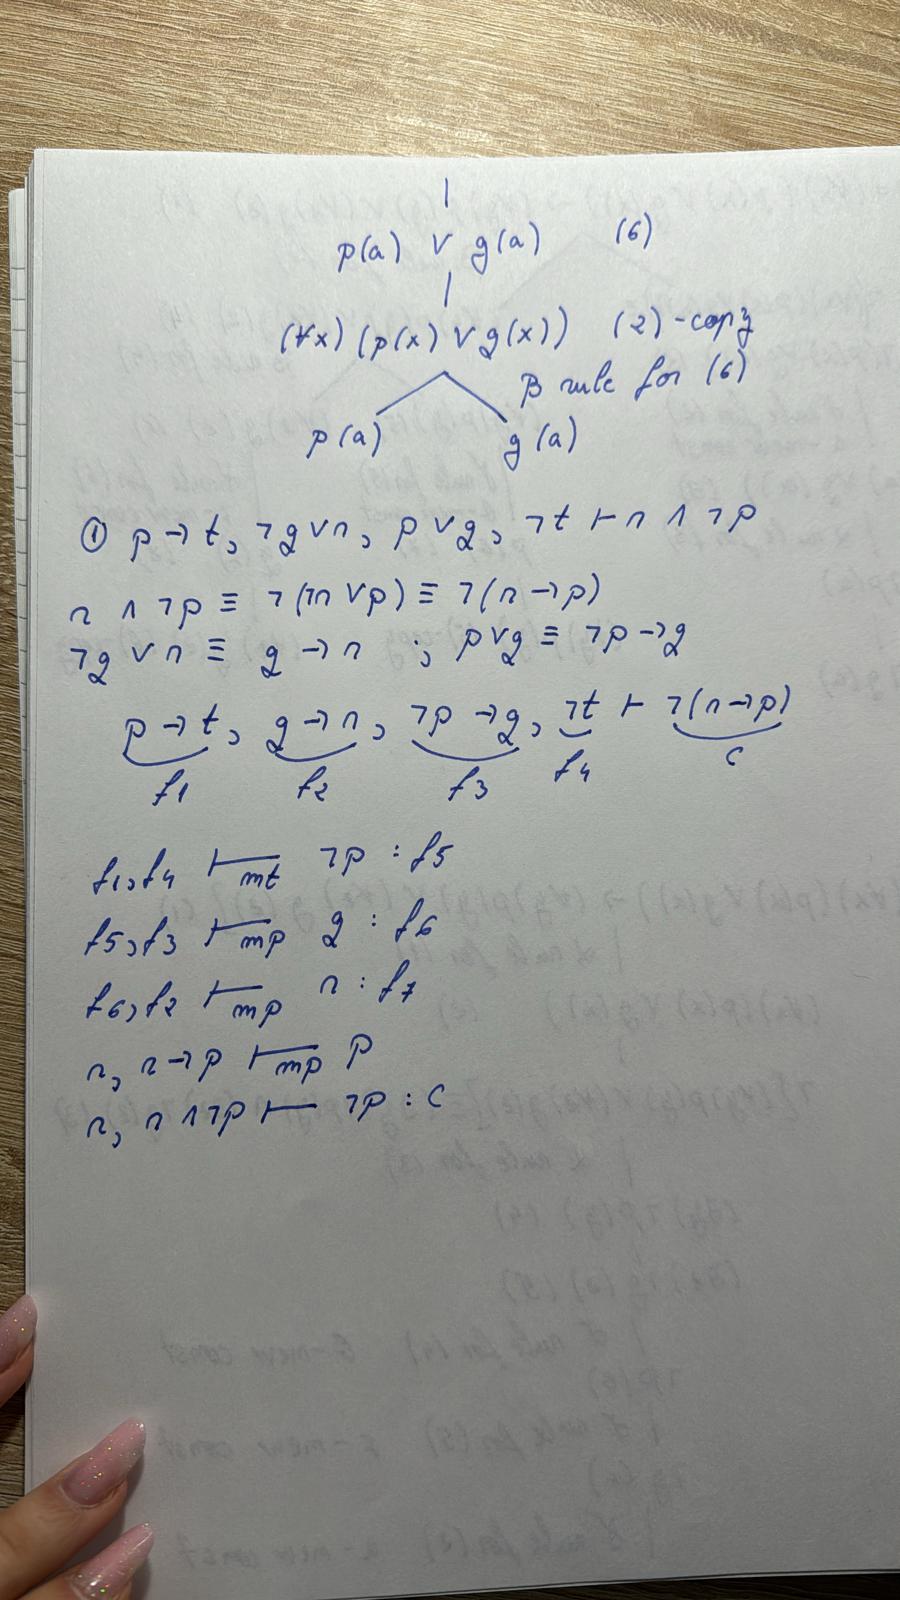 p(a) ∨ g(a) (6)
(∀x) (p(x) ∨ g(x)) (2)-copy
β rule for (6)
p(a) g(a)
① p → t, ¬g ∨ n, p ∨ g, ¬t ⊢ n ∧ ¬p
n ∧ ¬p ≡ ¬(¬n ∨ p) ≡ ¬(n → p)
¬g ∨ n ≡ g → n ; p ∨ g ≡ ¬p → g
p → t, g → n, ¬p → g, ¬t ⊢ ¬(n → p)
f1 f2 f3 f4 c
f1, f4 ⊢mt ¬p : f5
f5, f3 ⊢mp g : f6
f6, f2 ⊢mp n : f7
n, n → p ⊢mp p
n, n ∧ ¬p ⊢ ¬p : c